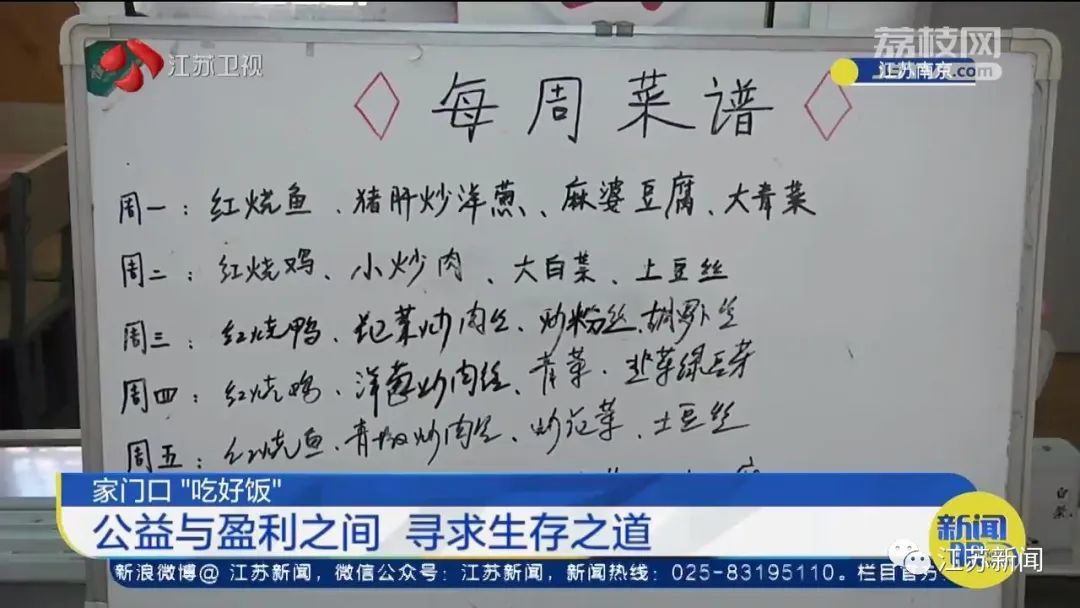 荔枝网
.com
江苏卫视
江苏南京
每周菜谱
周一：红烧鱼、猪肝炒洋葱、麻婆豆腐、大青菜
周二：红烧鸡、小炒肉、大白菜、土豆丝
周三：红烧鸭、花菜炒肉丝、炒粉丝、胡萝卜丝
周四：红烧鸡、洋葱炒肉丝、青菜、韭菜绿豆芽
周五：红烧鱼、青椒炒肉丝、炒花菜、土豆丝
白菜
家门口"吃好饭"
公益与盈利之间 寻求生存之道
新闻
江苏新闻
新浪微博@ 江苏新闻，微信公众号：江苏新闻，新闻热线：025-83195110。栏目官方